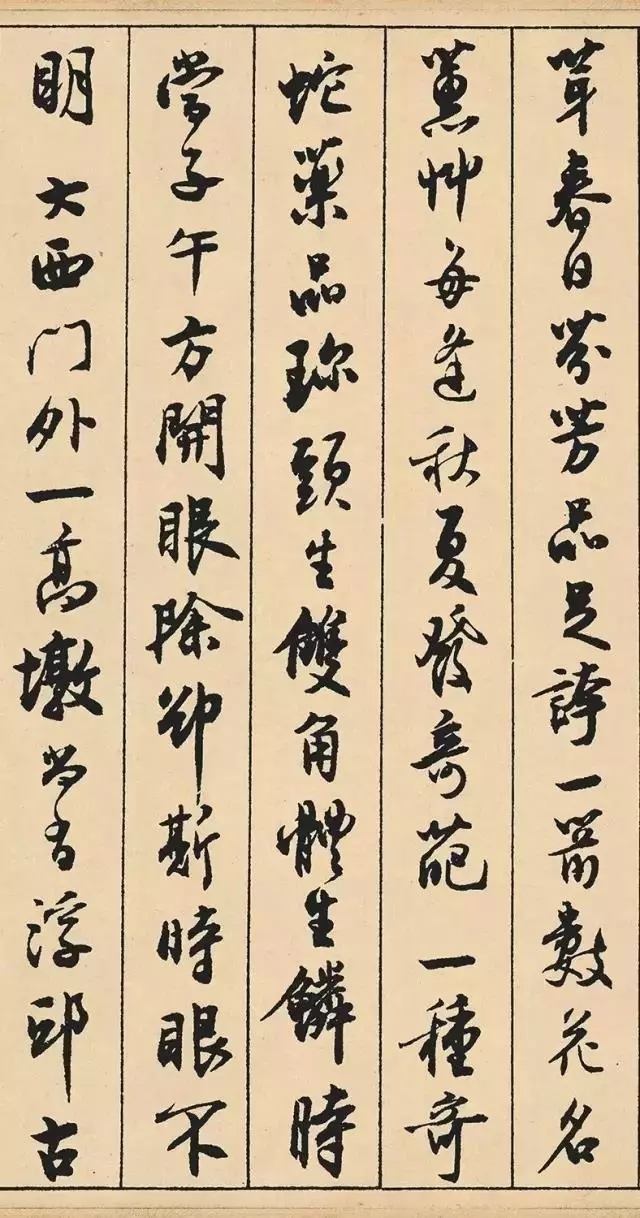 芽春日芬芳品足誇一箭數花名
蕙艸每逢秋夏發奇葩一種奇
蛇藥品珍頸生雙角體生鱗時
當子午方開眼除卻斯時眼不
明 大西門外一高墩尚有浮邱古